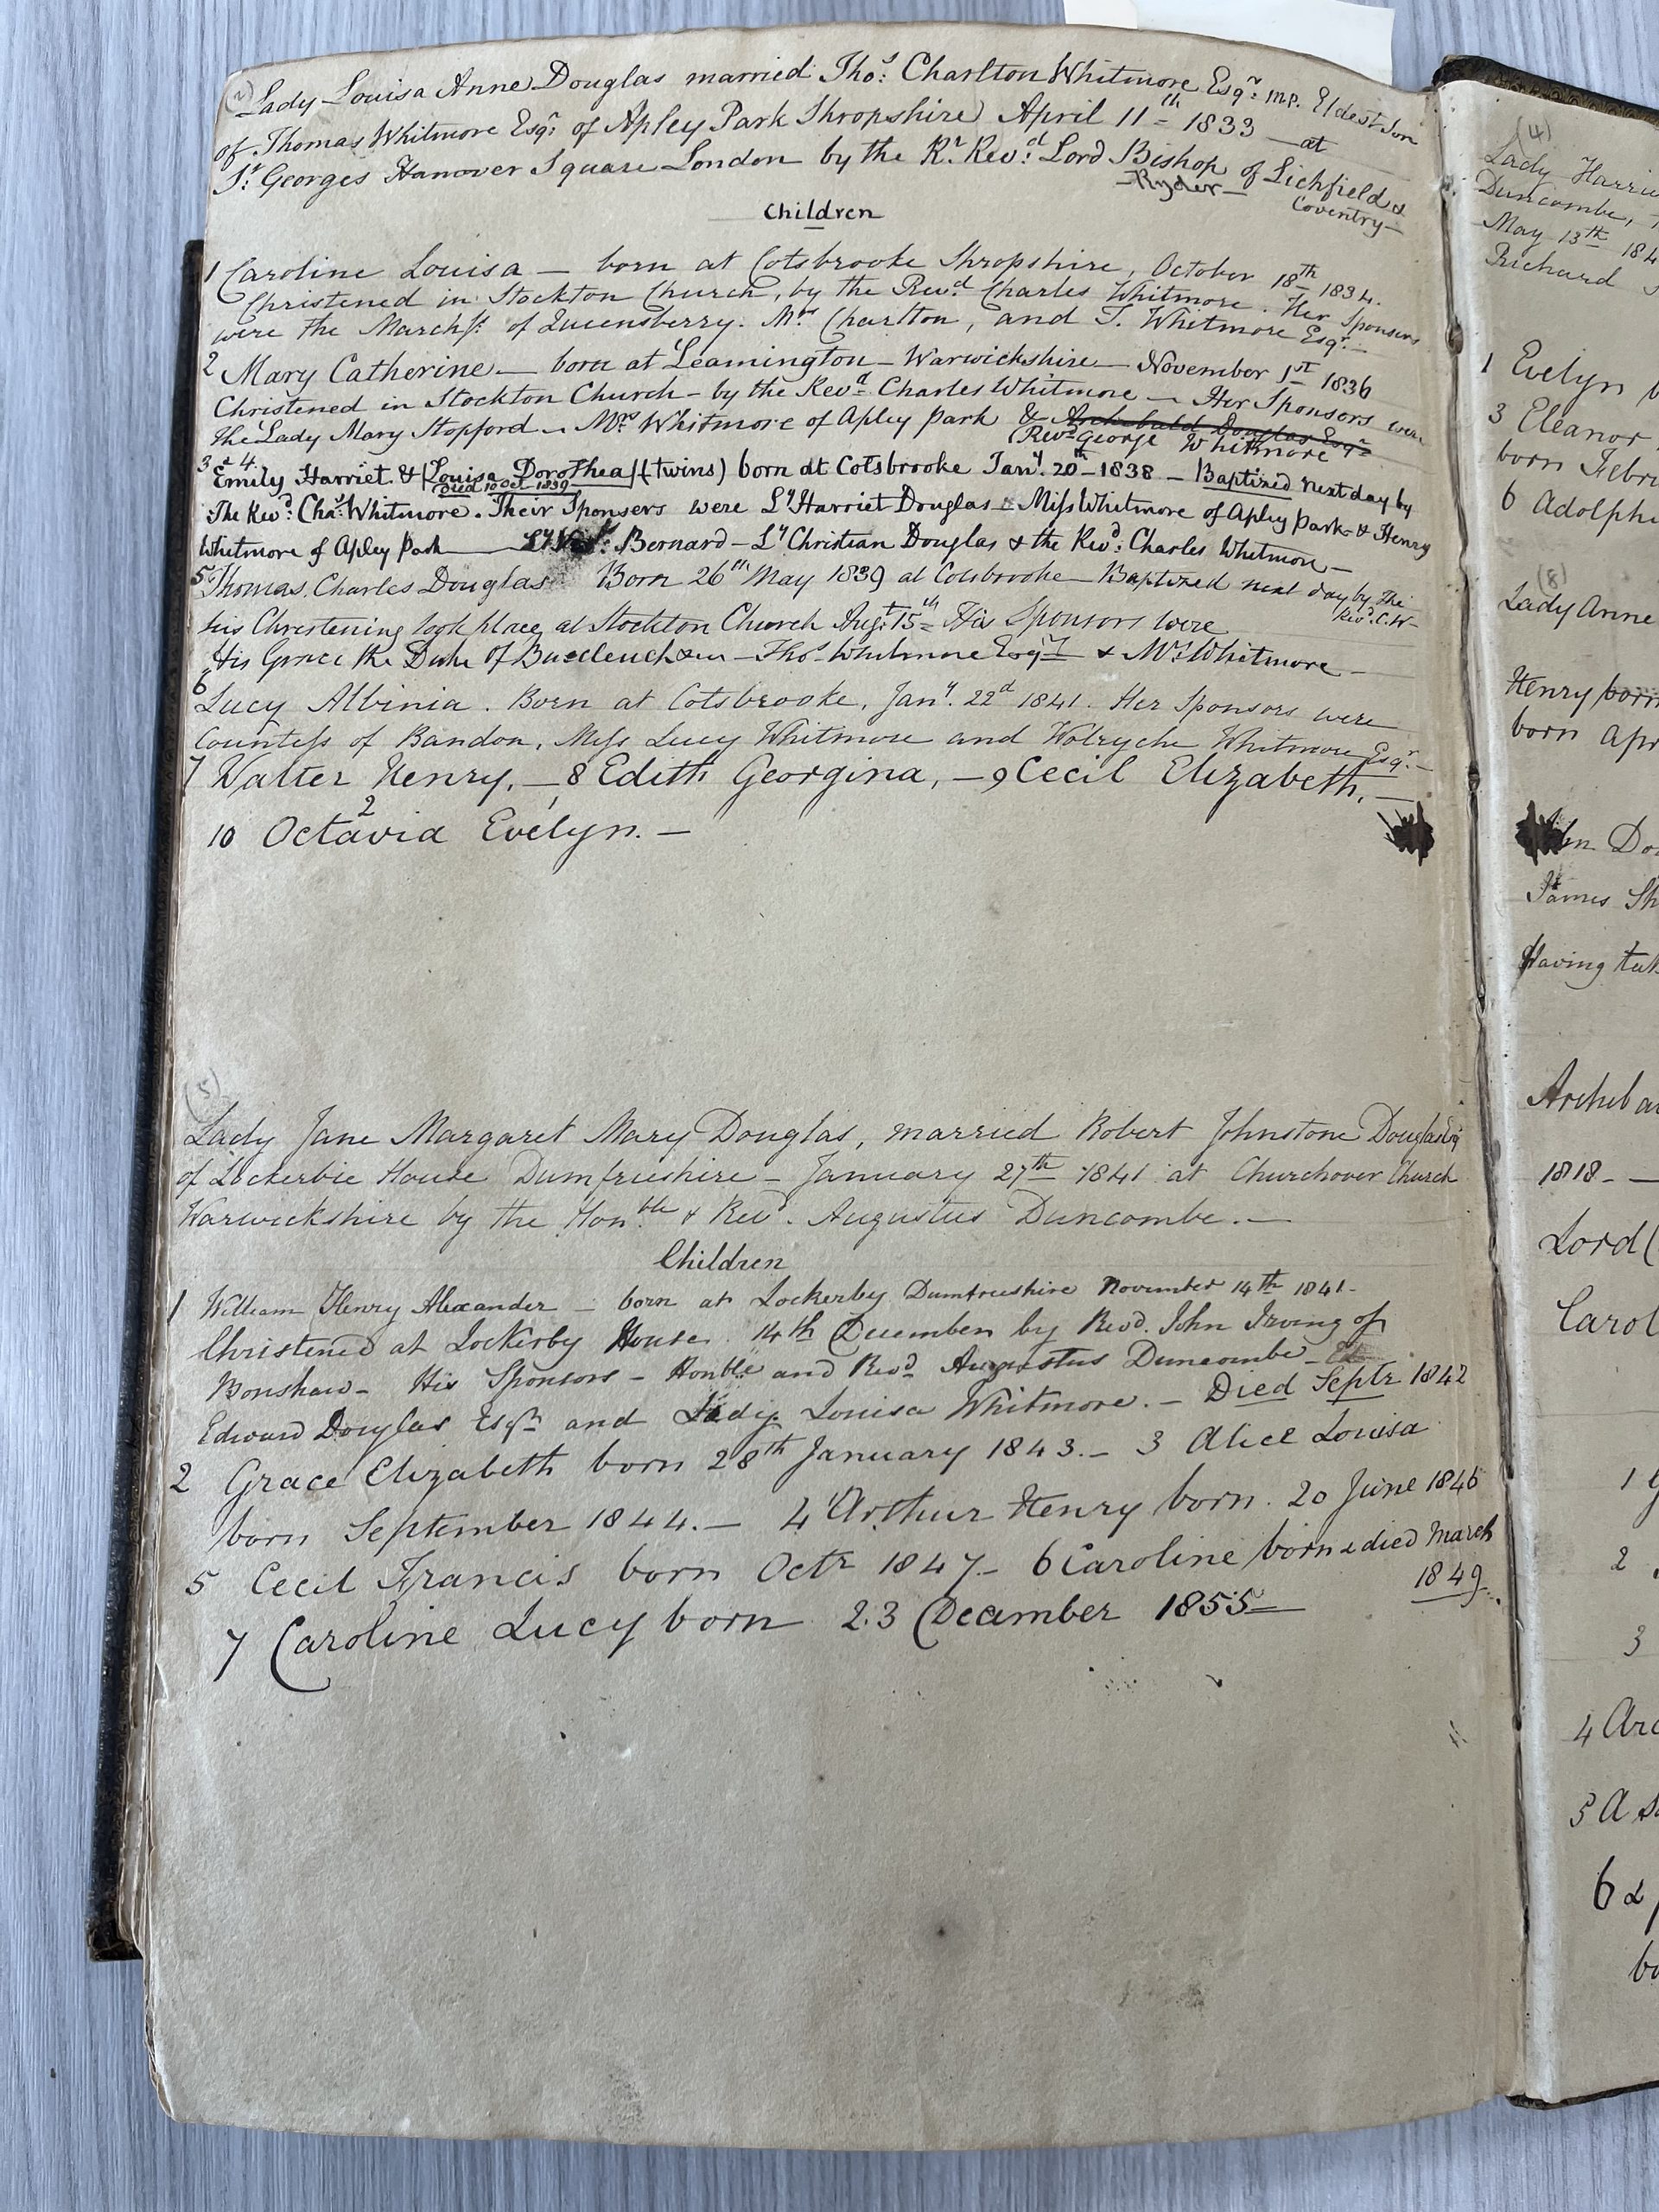 (2) Lady Louisa Anne Douglas married Thos: Charlton Whitmore Esqr: M.P. Eldest Son
of Thomas Whitmore Esqr: of Apley Park Shropshire April 11th 1833 — at
St: Georges Hanover Square London by the Rt. Revd: Lord Bishop of Lichfield &
— Ryder — Coventry —
Children
1 Caroline Louisa — born at Cotsbrooke Shropshire, October 18th 1834.
Christened in Stockton Church, by the Revd. Charles Whitmore. Her Sponsors
were the Marchss: of Queensberry. Mrs Charlton, and T. Whitmore Esqr. —
2 Mary Catherine — born at Leamington — Warwickshire — November 1st 1836
Christened in Stockton Church — by the Revd. Charles Whitmore — Her Sponsors were
the Lady Mary Stopford — Mrs Whitmore of Apley Park & Archibald Douglas Esqr
(Revd George Whitmore
3 & 4 Emily Harriet & (Louisa Dorothea) (twins) born at Cotsbrooke Jany. 20th — 1838 — Baptized next day by
Died 10 Oct. 1839
The Revd: Chas: Whitmore. Their Sponsers were Ly Harriet Douglas — Miss Whitmore of Apley Park & Henry
Whitmore of Apley Park — Ly Bernard — Ly Christian Douglas & the Revd: Charles Whitmore —
5 Thomas Charles Douglas Born 26th May 1839 at Cotsbrooke — Baptized next day by the
Revd. C.W —
his Christening took place at Stockton Church Augt: 15th His Sponsors were
His Grace the Duke of Buccleuch — Thos Whitmore Esqr & Mrs Whitmore —
6 Lucy Albinia. Born at Cotsbrooke, Jany. 22d 1841. Her Sponsors were
Countess of Bandon, Miss Lucy Whitmore and Wolryche Whitmore Esqr. —
7 Walter Henry, — 8 Edith Georgina, — 9 Cecil Elizabeth, —
2 1
10 Octavia Evelyn. —
(5)
Lady Jane Margaret Mary Douglas, married Robert Johnstone Douglas Esq
of Lockerbie House Dumfrieshire — January 27th 1841 at Churchover Church
Warwickshire by the Honble & Revd. Augustus Duncombe. —
Children
1 William Henry Alexander — born at Lockerby Dumfrieshire November 14th 1841 —
Christened at Lockerby House 14th December by Revd. John Irving of
Bonshaw — His Sponsors — Honble and Revd Augustus Duncombe —
Edward Douglas Esqr and Lady Louisa Whitmore. — Died Septr 1842
2 Grace Elizabeth born 28th January 1843. — 3 Alice Louisa
born September 1844. — 4 Arthur Henry born. 20 June 1846
5 Cecil Francis born Octr 1847 — 6 Caroline born & died March
1849.
7 Caroline Lucy born 23 December 1855 —
(4)
Lady Harri
Duncombe,
May 13th 184
Richard
1 Evelyn
3 Eleanor
born Febr
6 Adolph
(8)
Lady Anne
Henry born
born Apr
Do
James Sh
Having
Archiba
1818 —
Lord
Carol
1
2
3
4 Arc
5 A
6 &
b